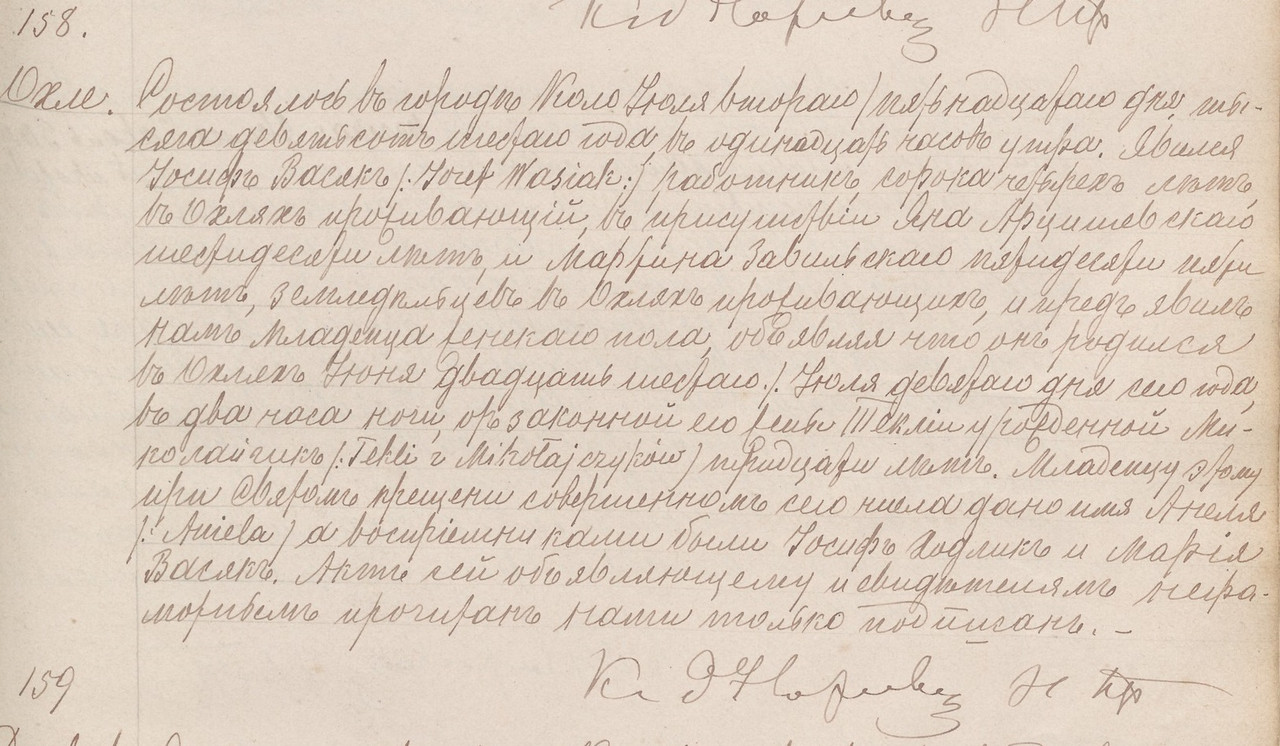 158.
Охле.
Состоялось въ городѣ Коло Іюля втораго / пятьнадцатаго дня, ты-
сяча девятьсотъ шестаго года, въ одинадцать часовъ утра. Явился
Іосифъ Васякъ /: Józef Wasiak :/ работникъ, сорока четырехъ лѣтъ,
въ Охляхъ проживающій, въ присутствіи Яна Арцишевскаго
шестидесяти лѣтъ, и Мартина Завильскаго пятидесяти пяти
лѣтъ, земледѣльцевъ въ Охляхъ проживающихъ, и предъявилъ
намъ младенца женскаго пола, объявляя что онъ родился
въ Охляхъ Іюня двадцать шестаго /. Іюля девятаго дня сего года,
въ два часа ночи, отъ законной его жены Текліи урожденной Ми-
колайчикъ /: Tekli z Mikołajczyków / тридцати лѣтъ. Младенцу этому
при Святомъ крещени совершенномъ сего числа дано имя Анеля
/: Aniela / а воспріемниками были Іосифъ Ходликъ и Марія
Васякъ. Актъ сей объявляющему и свидѣтелямъ негра-
мотнымъ прочитанъ нами только подписанъ. –
159